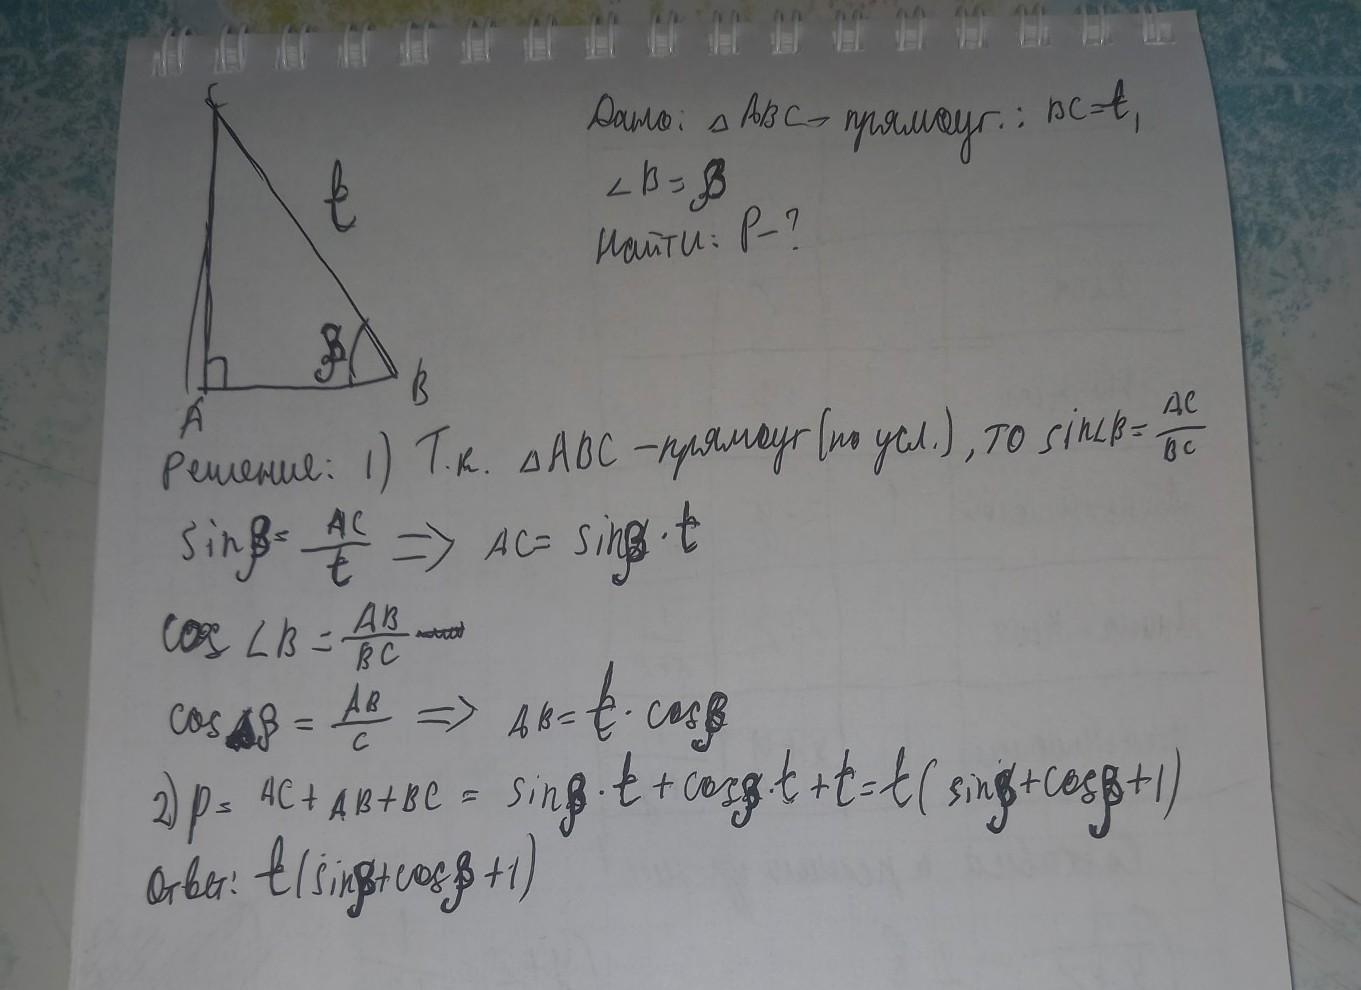 C
t
β
A
B
Дано: △ABC – прямоуг.: BC=t,
∠B=β
Найти: P-?
Решение: 1) Т.к. △ABC – прямоуг (по усл.), то sin∠B = AC/BC
sinβ = AC/t ⇒ AC = sinβ · t
cos ∠B = AB/BC
cos β = AB/C ⇒ AB = t · cosβ
2) P = AC + AB + BC = sinβ · t + cosβ · t + t = t( sinβ + cosβ + 1)
Ответ: t(sinβ + cosβ + 1)